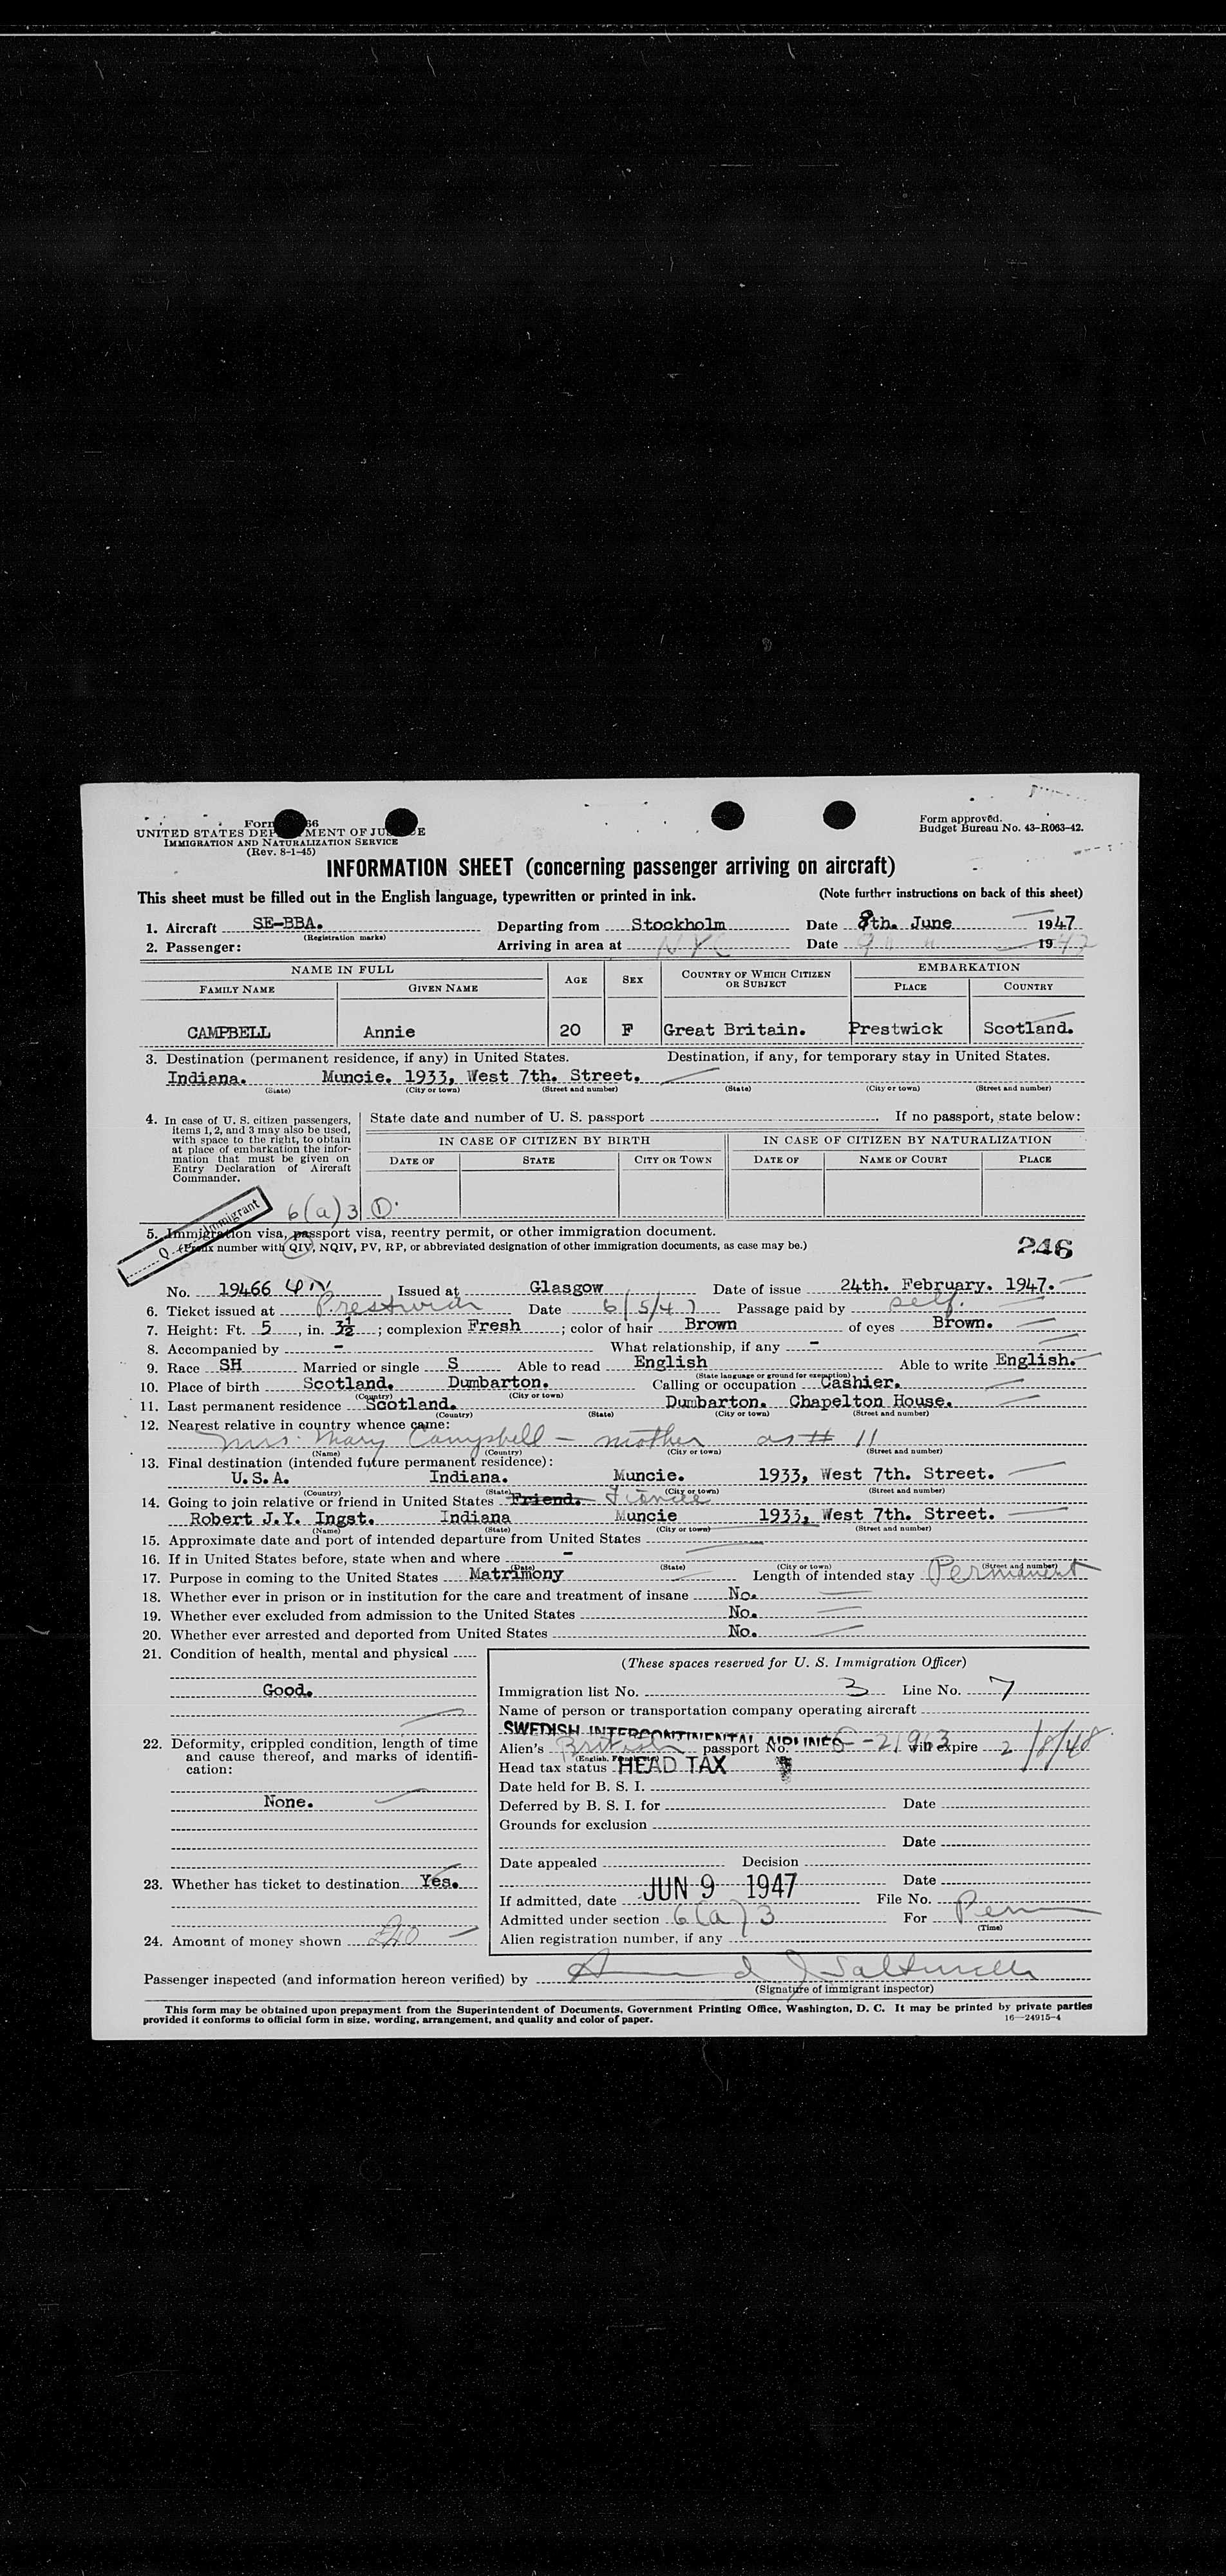 Form 66
UNITED STATES DEP MENT OF JU E
IMMIGRATION AND NATURALIZATION SERVICE
(Rev. 8-1-45)
Form approved.
Budget Bureau No. 43-R063-42.
INFORMATION SHEET (concerning passenger arriving on aircraft)
This sheet must be filled out in the English language, typewritten or printed in ink. (Note further instructions on back of this sheet)
1. Aircraft SE-BBA. Departing from Stockholm Date 8th. June 1947
(Registration marks)
2. Passenger: Arriving in area at NYC Date 9 " " 1947
NAME IN FULL AGE SEX COUNTRY OF WHICH CITIZEN OR SUBJECT EMBARKATION
FAMILY NAME GIVEN NAME PLACE COUNTRY
CAMPBELL Annie 20 F Great Britain. Prestwick Scotland.
3. Destination (permanent residence, if any) in United States. Destination, if any, for temporary stay in United States.
Indiana. Muncie. 1933, West 7th. Street.
(State) (City or town) (Street and number) (State) (City or town) (Street and number)
4. In case of U. S. citizen passengers, items 1, 2, and 3 may also be used, with space to the right, to obtain at place of embarkation the information that must be given on Entry Declaration of Aircraft Commander.
State date and number of U. S. passport If no passport, state below:
IN CASE OF CITIZEN BY BIRTH IN CASE OF CITIZEN BY NATURALIZATION
DATE OF STATE CITY OR TOWN DATE OF NAME OF COURT PLACE
6(a)3 D.
Q - Immigrant
5. Immigration visa, passport visa, reentry permit, or other immigration document.
(Prefix number with QIV, NQIV, PV, RP, or abbreviated designation of other immigration documents, as case may be.) 246
No. 19466 QIV Issued at Glasgow Date of issue 24th. February. 1947.
6. Ticket issued at Prestwick Date 6/5/47 Passage paid by self.
7. Height: Ft. 5, in. 3½; complexion Fresh; color of hair Brown of eyes Brown.
8. Accompanied by - What relationship, if any -
9. Race SH Married or single S Able to read English Able to write English.
(State language or ground for exemption)
10. Place of birth Scotland. Dumbarton. Calling or occupation Cashier.
(Country) (City or town)
11. Last permanent residence Scotland. Dumbarton. Chapelton House.
(Country) (State) (City or town) (Street and number)
12. Nearest relative in country whence came:
Mrs. Mary Campbell - mother as # 11
(Name) (Country) (City or town) (Street and number)
13. Final destination (intended future permanent residence):
U.S.A. Indiana. Muncie. 1933, West 7th. Street.
(Country) (State) (City or town) (Street and number)
14. Going to join relative or friend in United States Friend. Fiancee
Robert J.Y. Ingst. Indiana Muncie 1933, West 7th. Street.
(Name) (State) (City or town) (Street and number)
15. Approximate date and port of intended departure from United States
16. If in United States before, state when and where -
(Date) (State) (City or town) (Street and number)
17. Purpose in coming to the United States Matrimony Length of intended stay Permanent
18. Whether ever in prison or in institution for the care and treatment of insane No.
19. Whether ever excluded from admission to the United States No.
20. Whether ever arrested and deported from United States No.
21. Condition of health, mental and physical
Good.
22. Deformity, crippled condition, length of time and cause thereof, and marks of identification:
None.
23. Whether has ticket to destination Yes.
24. Amount of money shown £40
(These spaces reserved for U. S. Immigration Officer)
Immigration list No. 3 Line No. 7
Name of person or transportation company operating aircraft
SWEDISH INTERCONTINENTAL AIRLINES
Alien's British passport No. will expire 2/8/48.
Head tax status HEAD TAX
Date held for B. S. I.
Deferred by B. S. I. for Date
Grounds for exclusion
Date
Date appealed Decision
Date
If admitted, date JUN 9 1947 File No.
Admitted under section 6(a)3 For Perm
(Time)
Alien registration number, if any
Passenger inspected (and information hereon verified) by
(Signature of immigrant inspector)
This form may be obtained upon prepayment from the Superintendent of Documents, Government Printing Office, Washington, D. C. It may be printed by private parties
provided it conforms to official form in size, wording, arrangement, and quality and color of paper. 16—24915-4